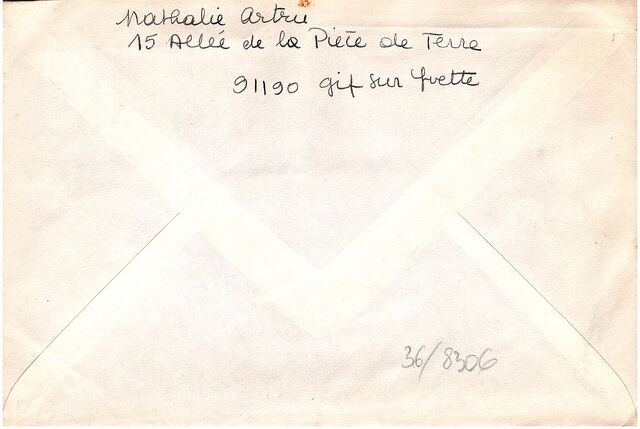 Nathalie Artru
15 Allée de la Pièce de Terre
91190 Gif sur Yvette
36/8306